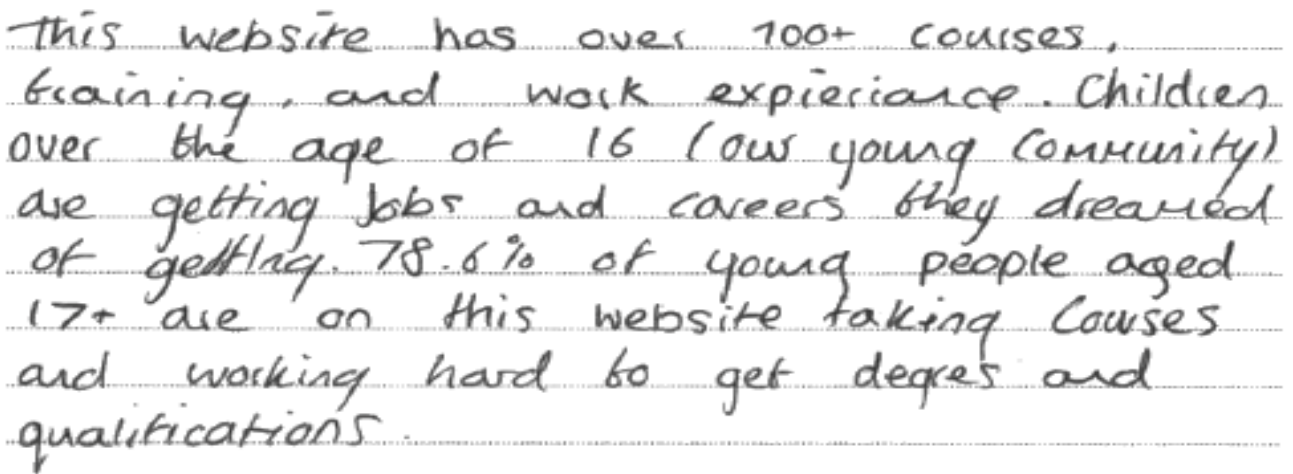 This website has over 100+ courses,
training, and work expieriance. Children
over the age of 16 (our young Community)
are getting jobs and careers they dreamed
of getting. 78.6% of young people aged
17+ are on this website taking Courses
and working hard to get degres and
qualifications.